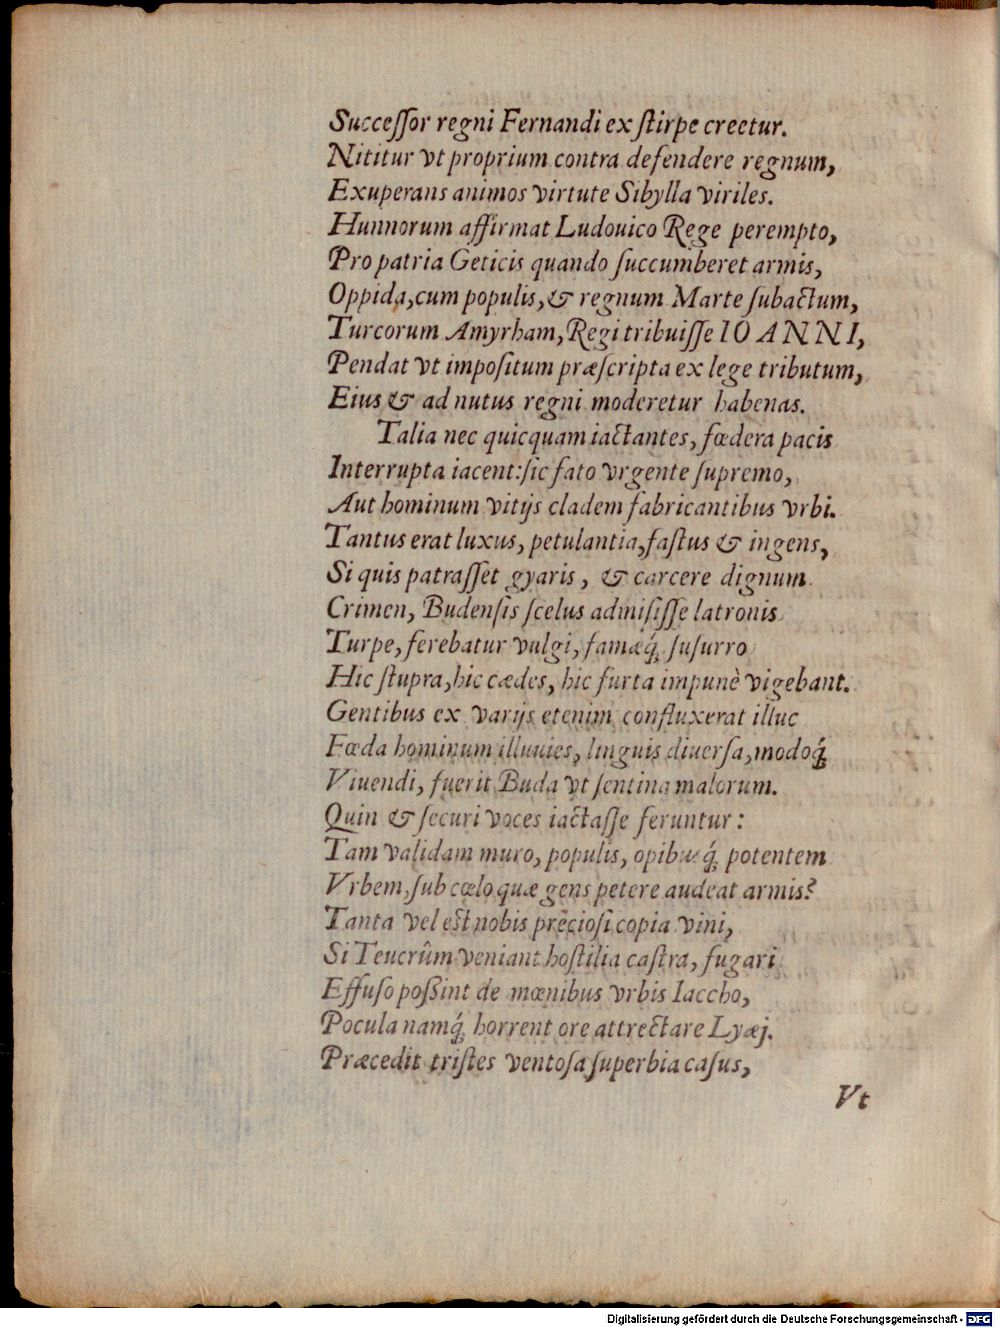 Succeſſor regni Fernandi ex ſtirpe creetur.
Nititur vt proprium contra defendere regnum,
Exuperans animos virtute Sibylla viriles.
Hunnorum affirmat Ludouico Rege perempto,
Pro patria Geticis quando ſuccumberet armis,
Oppida, cum populis, & regnum Marte ſubactum,
Turcorum Amyrham, Regi tribuiſſe IOANNI,
Pendat vt impoſitum præſcripta ex lege tributum,
Eius & ad nutus regni moderetur habenas.
Talia nec quicquam iactantes, fœdera pacis
Interrupta iacent: ſic fato vrgente ſupremo,
Aut hominum vitijs cladem fabricantibus vrbi.
Tantus erat luxus, petulantia, faſtus & ingens,
Si quis patraſſet gyaris, & carcere dignum
Crimen, Budenſis ſcelus admiſiſſe latronis
Turpe, ferebatur vulgi, famæq́; ſuſurro
Hic ſtupra, hic cædes, hic furta impunè vigebant.
Gentibus ex varijs etenim confluxerat illuc
Fœda hominum illuuies, linguis diuerſa, modoq́;
Viuendi, fuerit Buda vt ſentina malorum.
Quin & ſecuri voces iactaſſe feruntur:
Tam validam muro, populis, opibusq́; potentem
Vrbem, ſub cœlo quæ gens petere audeat armis?
Tanta vel est nobis precioſi copia vini,
Si Teucrûm veniant hoſtilia caſtra, fugari
Effuſo poßint de mœnibus vrbis Iaccho,
Pocula namq́; horrent ore attrectare Lyæj.
Præcedit triſtes ventoſa ſuperbia caſus,
Vt
Digitalisierung gefördert durch die Deutsche Forschungsgemeinschaft - DFG